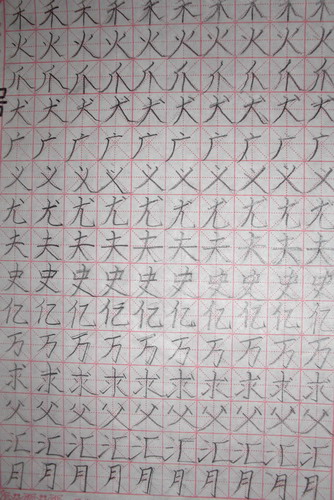 禾禾禾禾禾禾禾禾禾禾
火火火火火火火火火火
爪爪爪爪爪爪爪爪爪爪
犬犬犬犬犬犬犬犬犬犬
广广广广广广广广广广
义义义义义义义义义义
尤尤尤尤尤尤尤尤尤尤
夫夫夫夫夫夫夫夫夫夫
史史史史史史史史史史
亿亿亿亿亿亿亿亿亿亿
万万万万万万万万万万
求求求求求求求求求求
父父父父父父父父父父
汇汇汇汇汇汇汇汇汇汇
月月月月月月月月月月